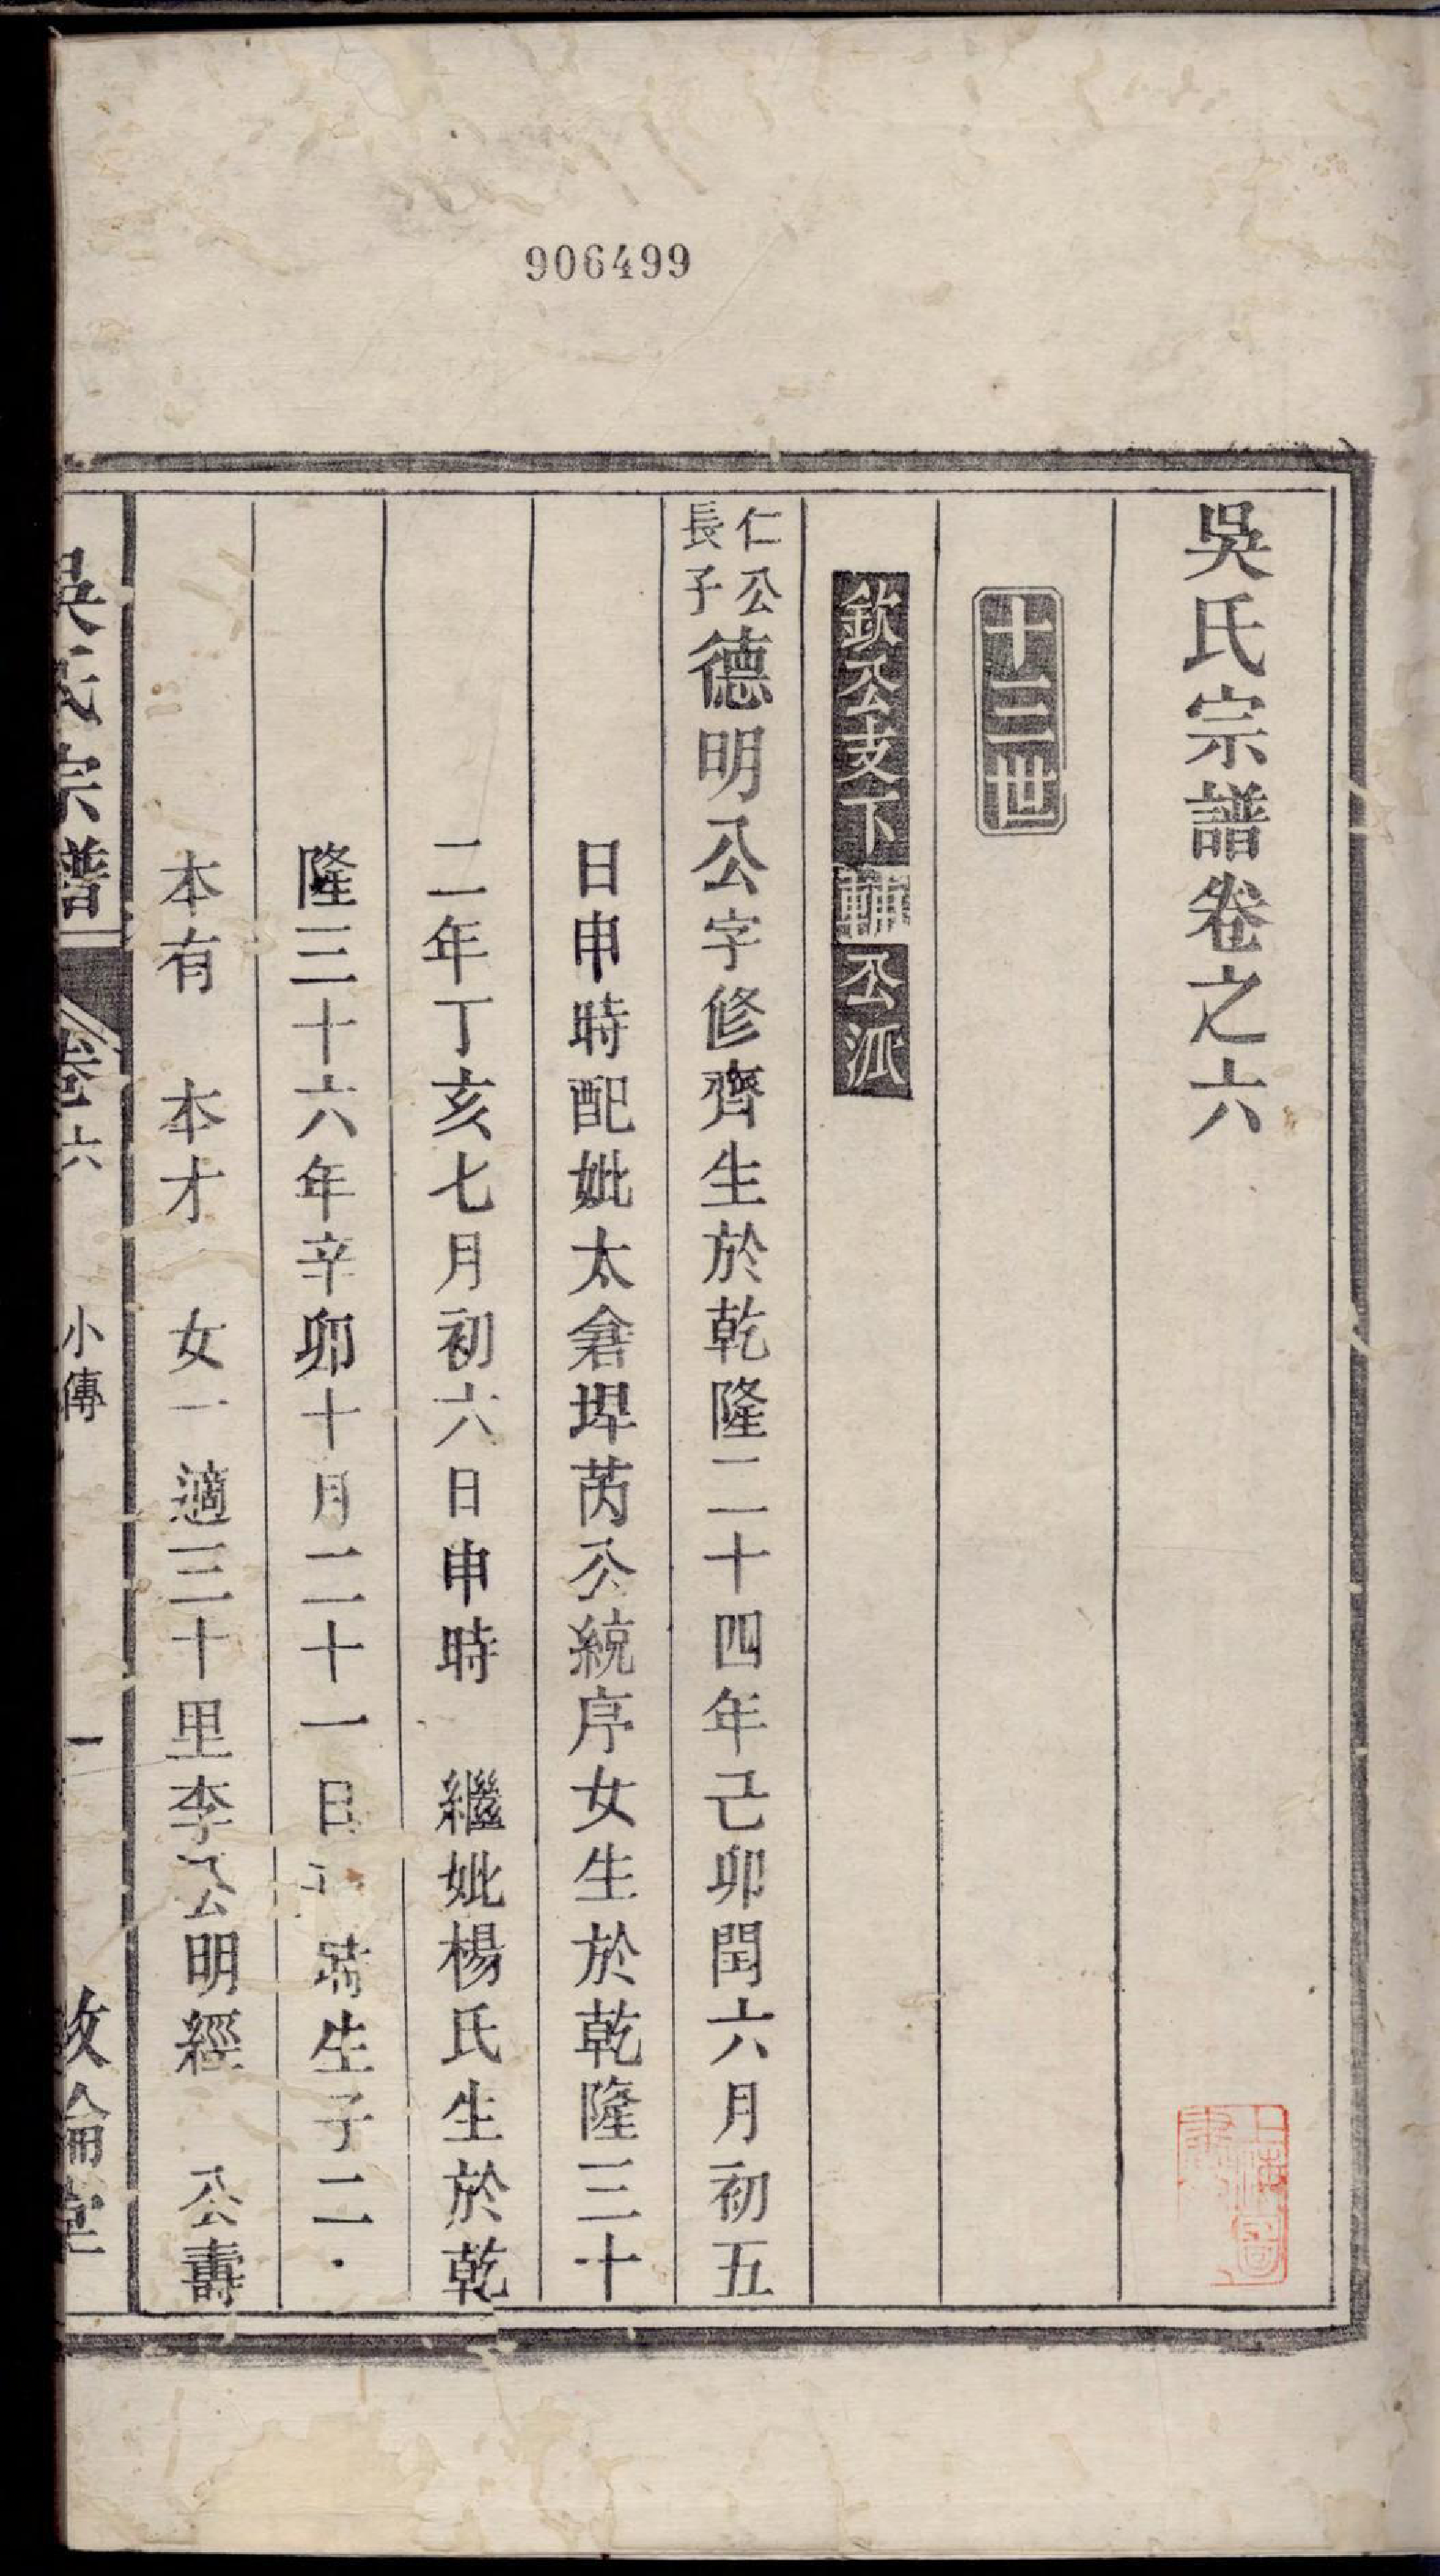 906499
吳氏宗譜卷之六
十三世
欽公支下輔公派
仁公長子德明公字修齊生於乾隆二十四年己卯閏六月初五
日申時配妣太倉埠芮公統序女生於乾隆三十
二年丁亥七月初六日申時 繼妣楊氏生於乾
隆三十六年辛卯十月二十一日 時生子二
本有 本才 女一適三十里李公明經 公壽
吳氏宗譜 卷六 小傳 一 敘倫堂
上海圖書